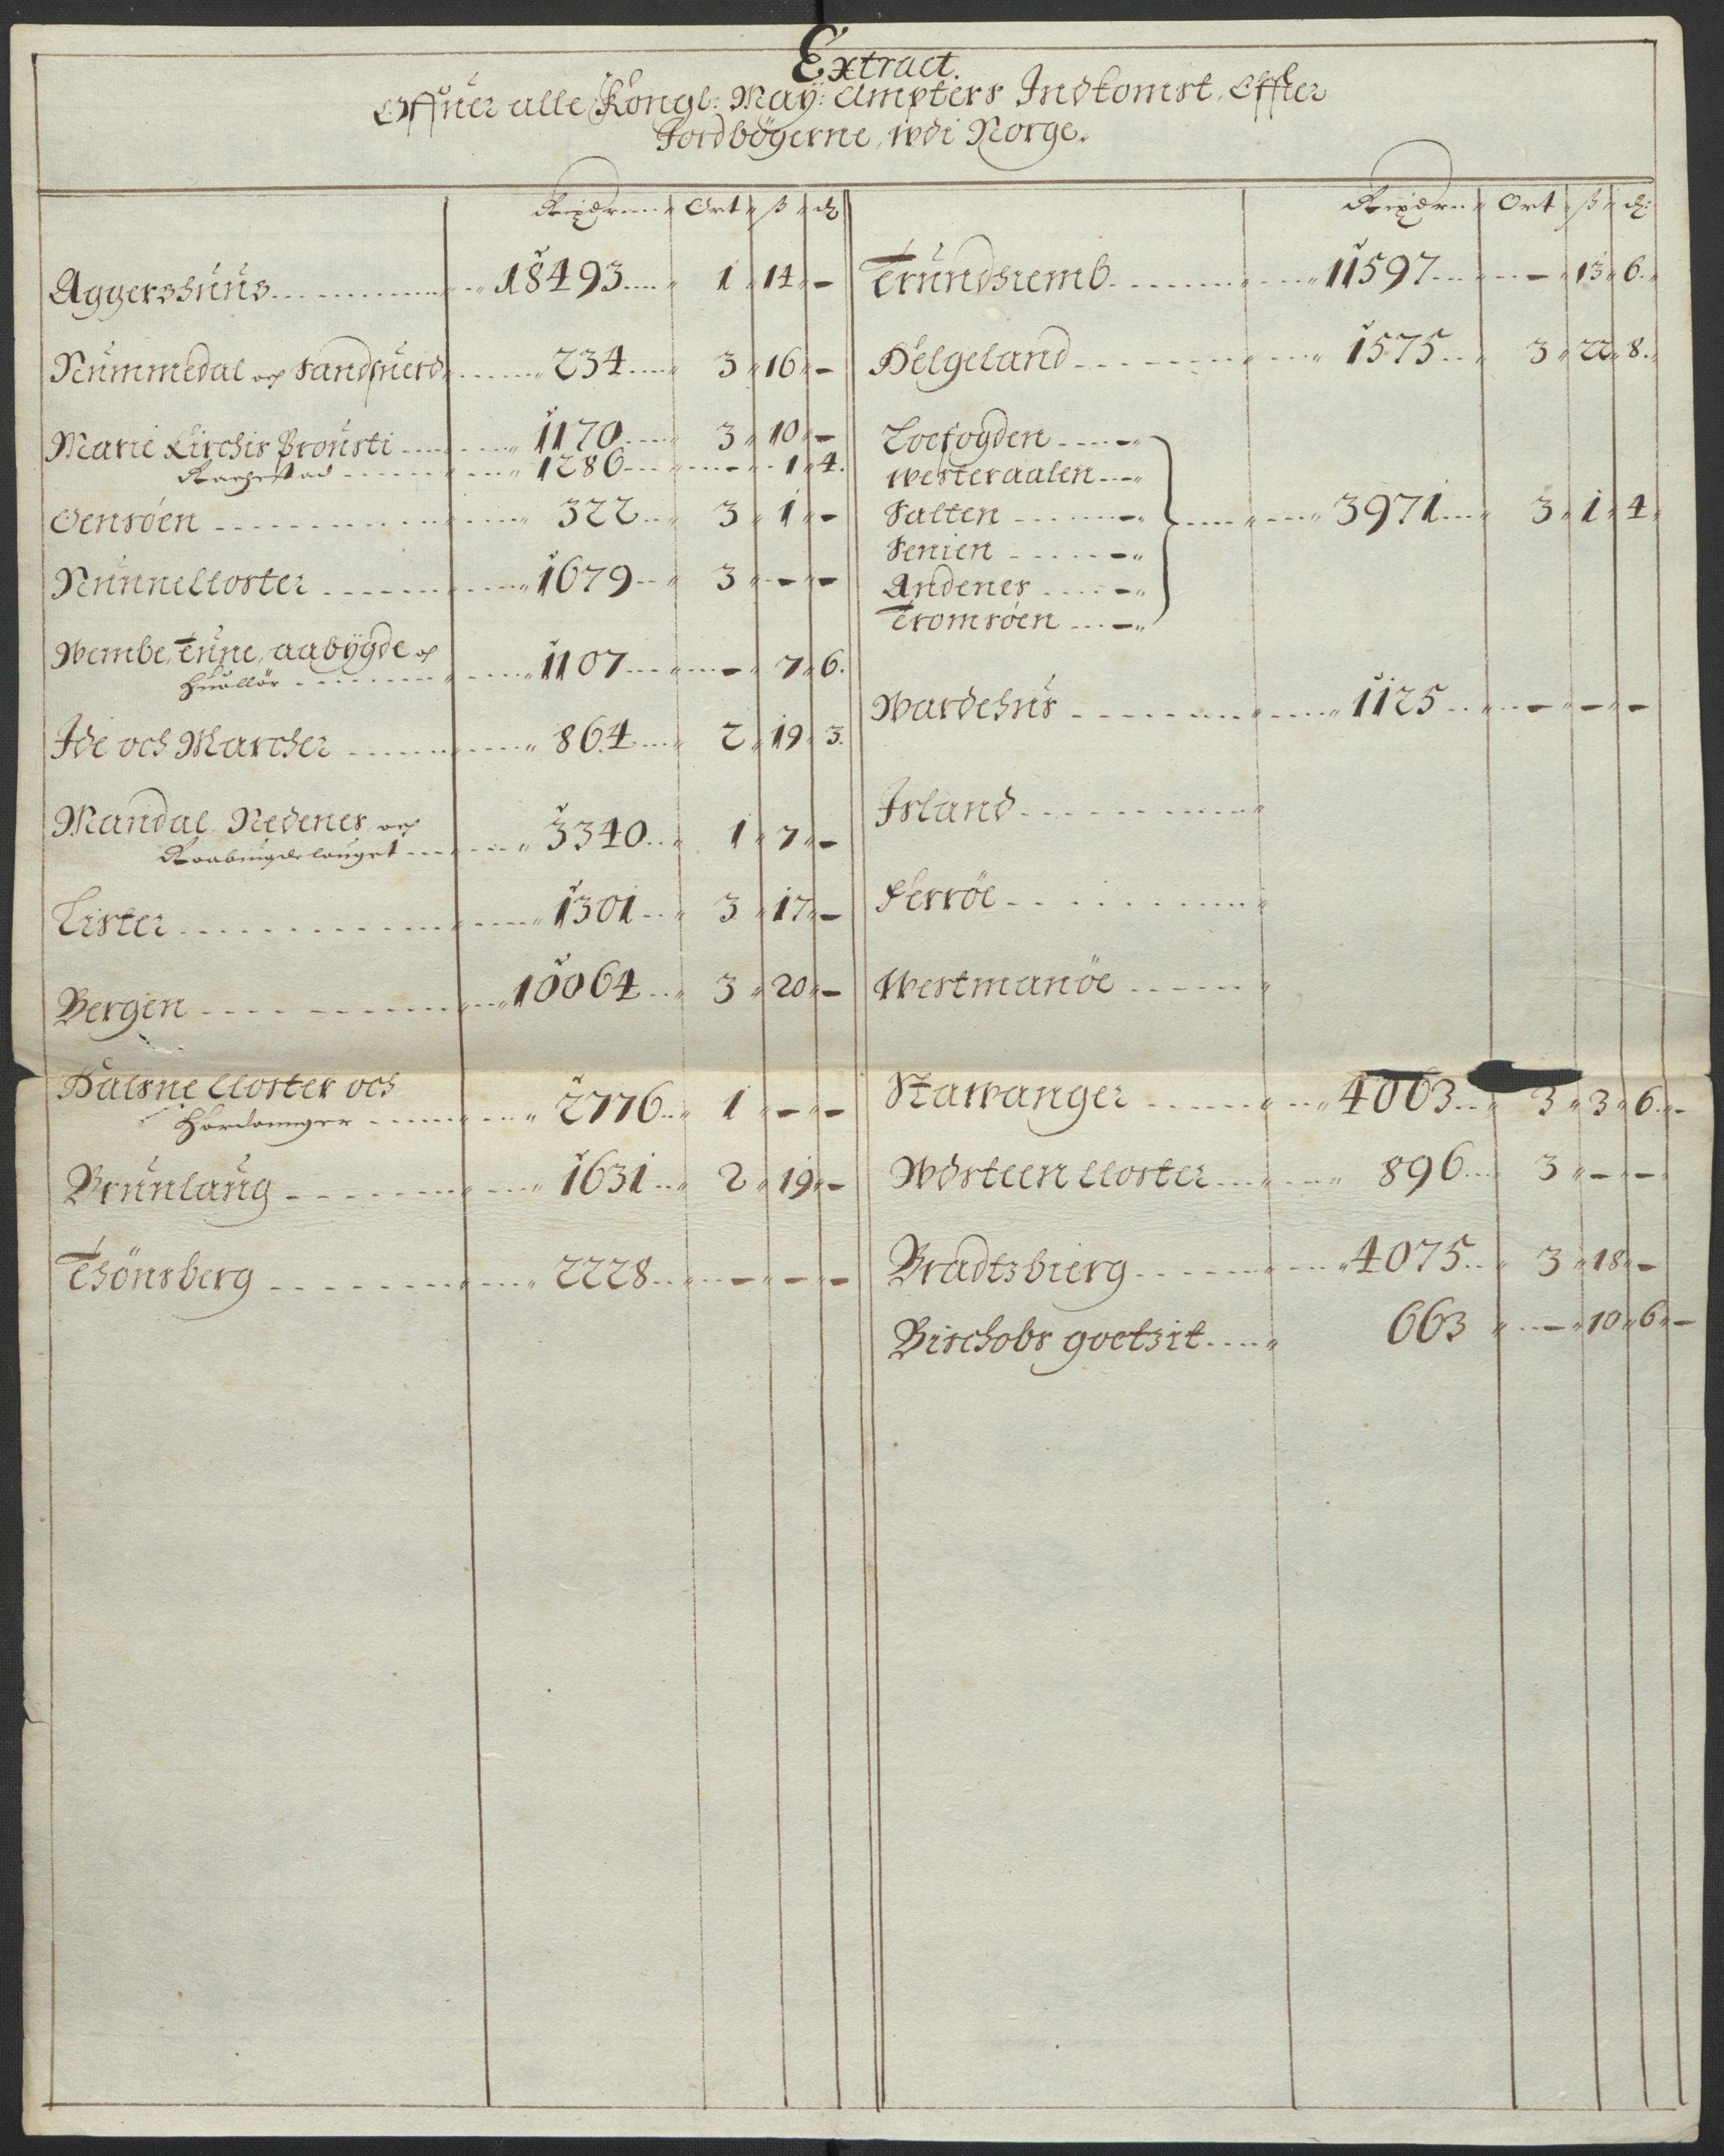 Extract.
Offuer alle Kongl: May: Ampters Indkomst, Effter
Jordbögerne, wdi Norge.
Rixdrn Ort ß ₰
Aggershuus 18493 1 14 -
Nummedal och Sandsuerd 234 3 16 -
Marie Kirchis Prousti 1170 3 10 -
Rachestad 1286 - 1 4.
Oensöen 322 3 1 -
Nunnecloster 1679 3 - -
Wembe, Tune, aabÿgde och
Huallör 1107 - 7 6.
Ide och Marcher 864 2 19 3.
Mandal, Nedenes, och
Raabÿgdelauget 3340 1 7 -
Lister 1301 3 17 -
Bergen 10064 3 20 -
Halsne Closter och
Hardanger 2776 1 - -
Brunlaug 1631 2 19 -
Thönsberg 2228 - - -
Rixdrn Ort ß ₰:
Trundhiemb 11597 - 13 6.
Helgeland 1575 3 22 8.
Loefogden
Westeraalen
Salten 3971 3 1 4
Senien
Andenes
Tromsöen
Wardehus 1125 - - -
Island
Ferröe
Westmanöe
Stawanger 4063 3 3 6 -
Wdsteen Closter 896 3 - -
Bradtzbierg 4075 3 18 -
Bischobs goetzit 663 - 10 6 -